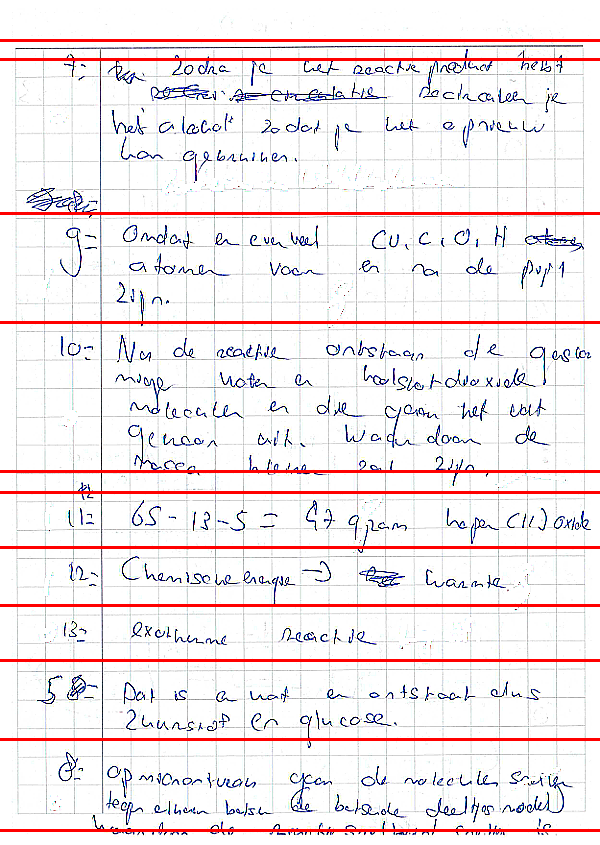 7= Zodra je het reactie product hebt
recirculeer je
het alcohol zodat je het opnieuw
kan gebruiken.
9= Omdat er evenveel Cu, C, O, H
atomen voor en na de pijl
zijn.
10= Na de reactie ontstaan de gasvor
mige water en koolstofdioxide
moleculen en die gaan het vat
gewoon uit. Waardoor de
massa kleiner zal zijn.
12
11= 65 - 13 - 5 = 47 gram koper (II) oxide
12= Chemische energie → warmte.
13= exotherme reactie
5 8= Dat is a wat er ontstaat dus
zuurstof en glucose.
8= op microniveau gaan de moleculen sneller
tegen elkaar botsen (de botsende deeltjes model)
waardoor de is